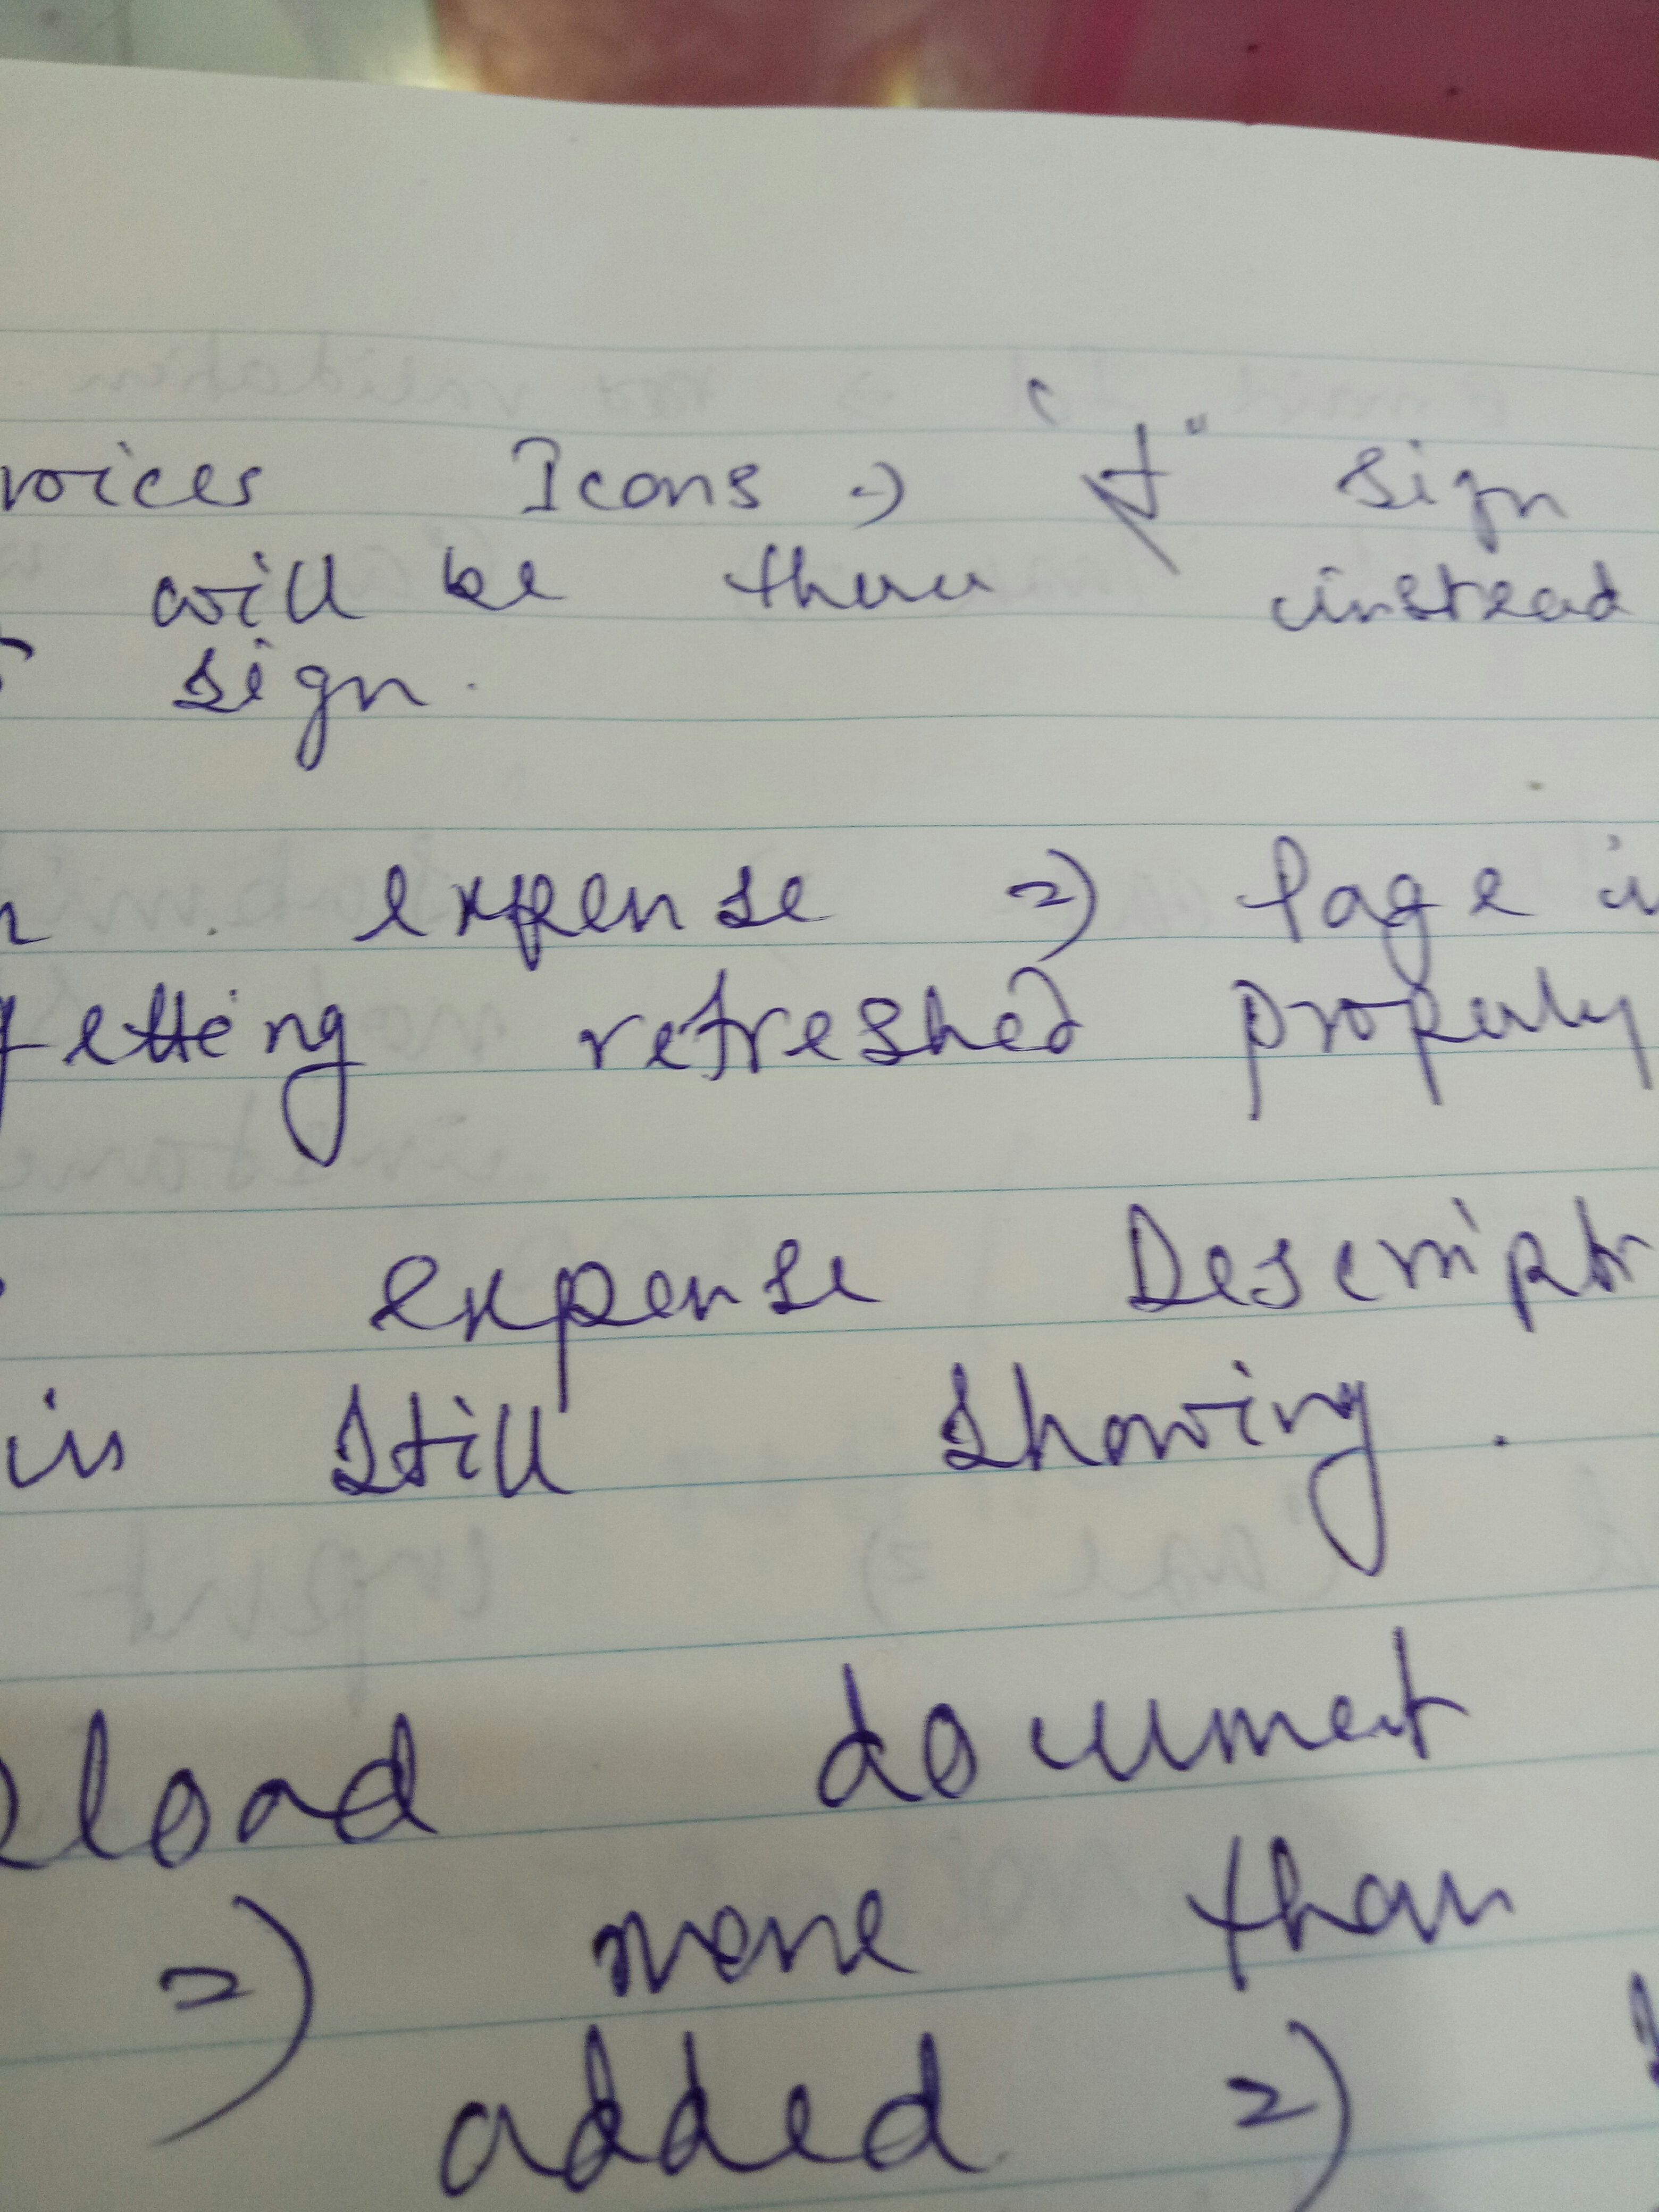 voices Icons => "+" sign
will be there instead
sign.
expense => Page is
getting refreshed properly
expense Descript
is still showing.
load document
=> more than
added =>